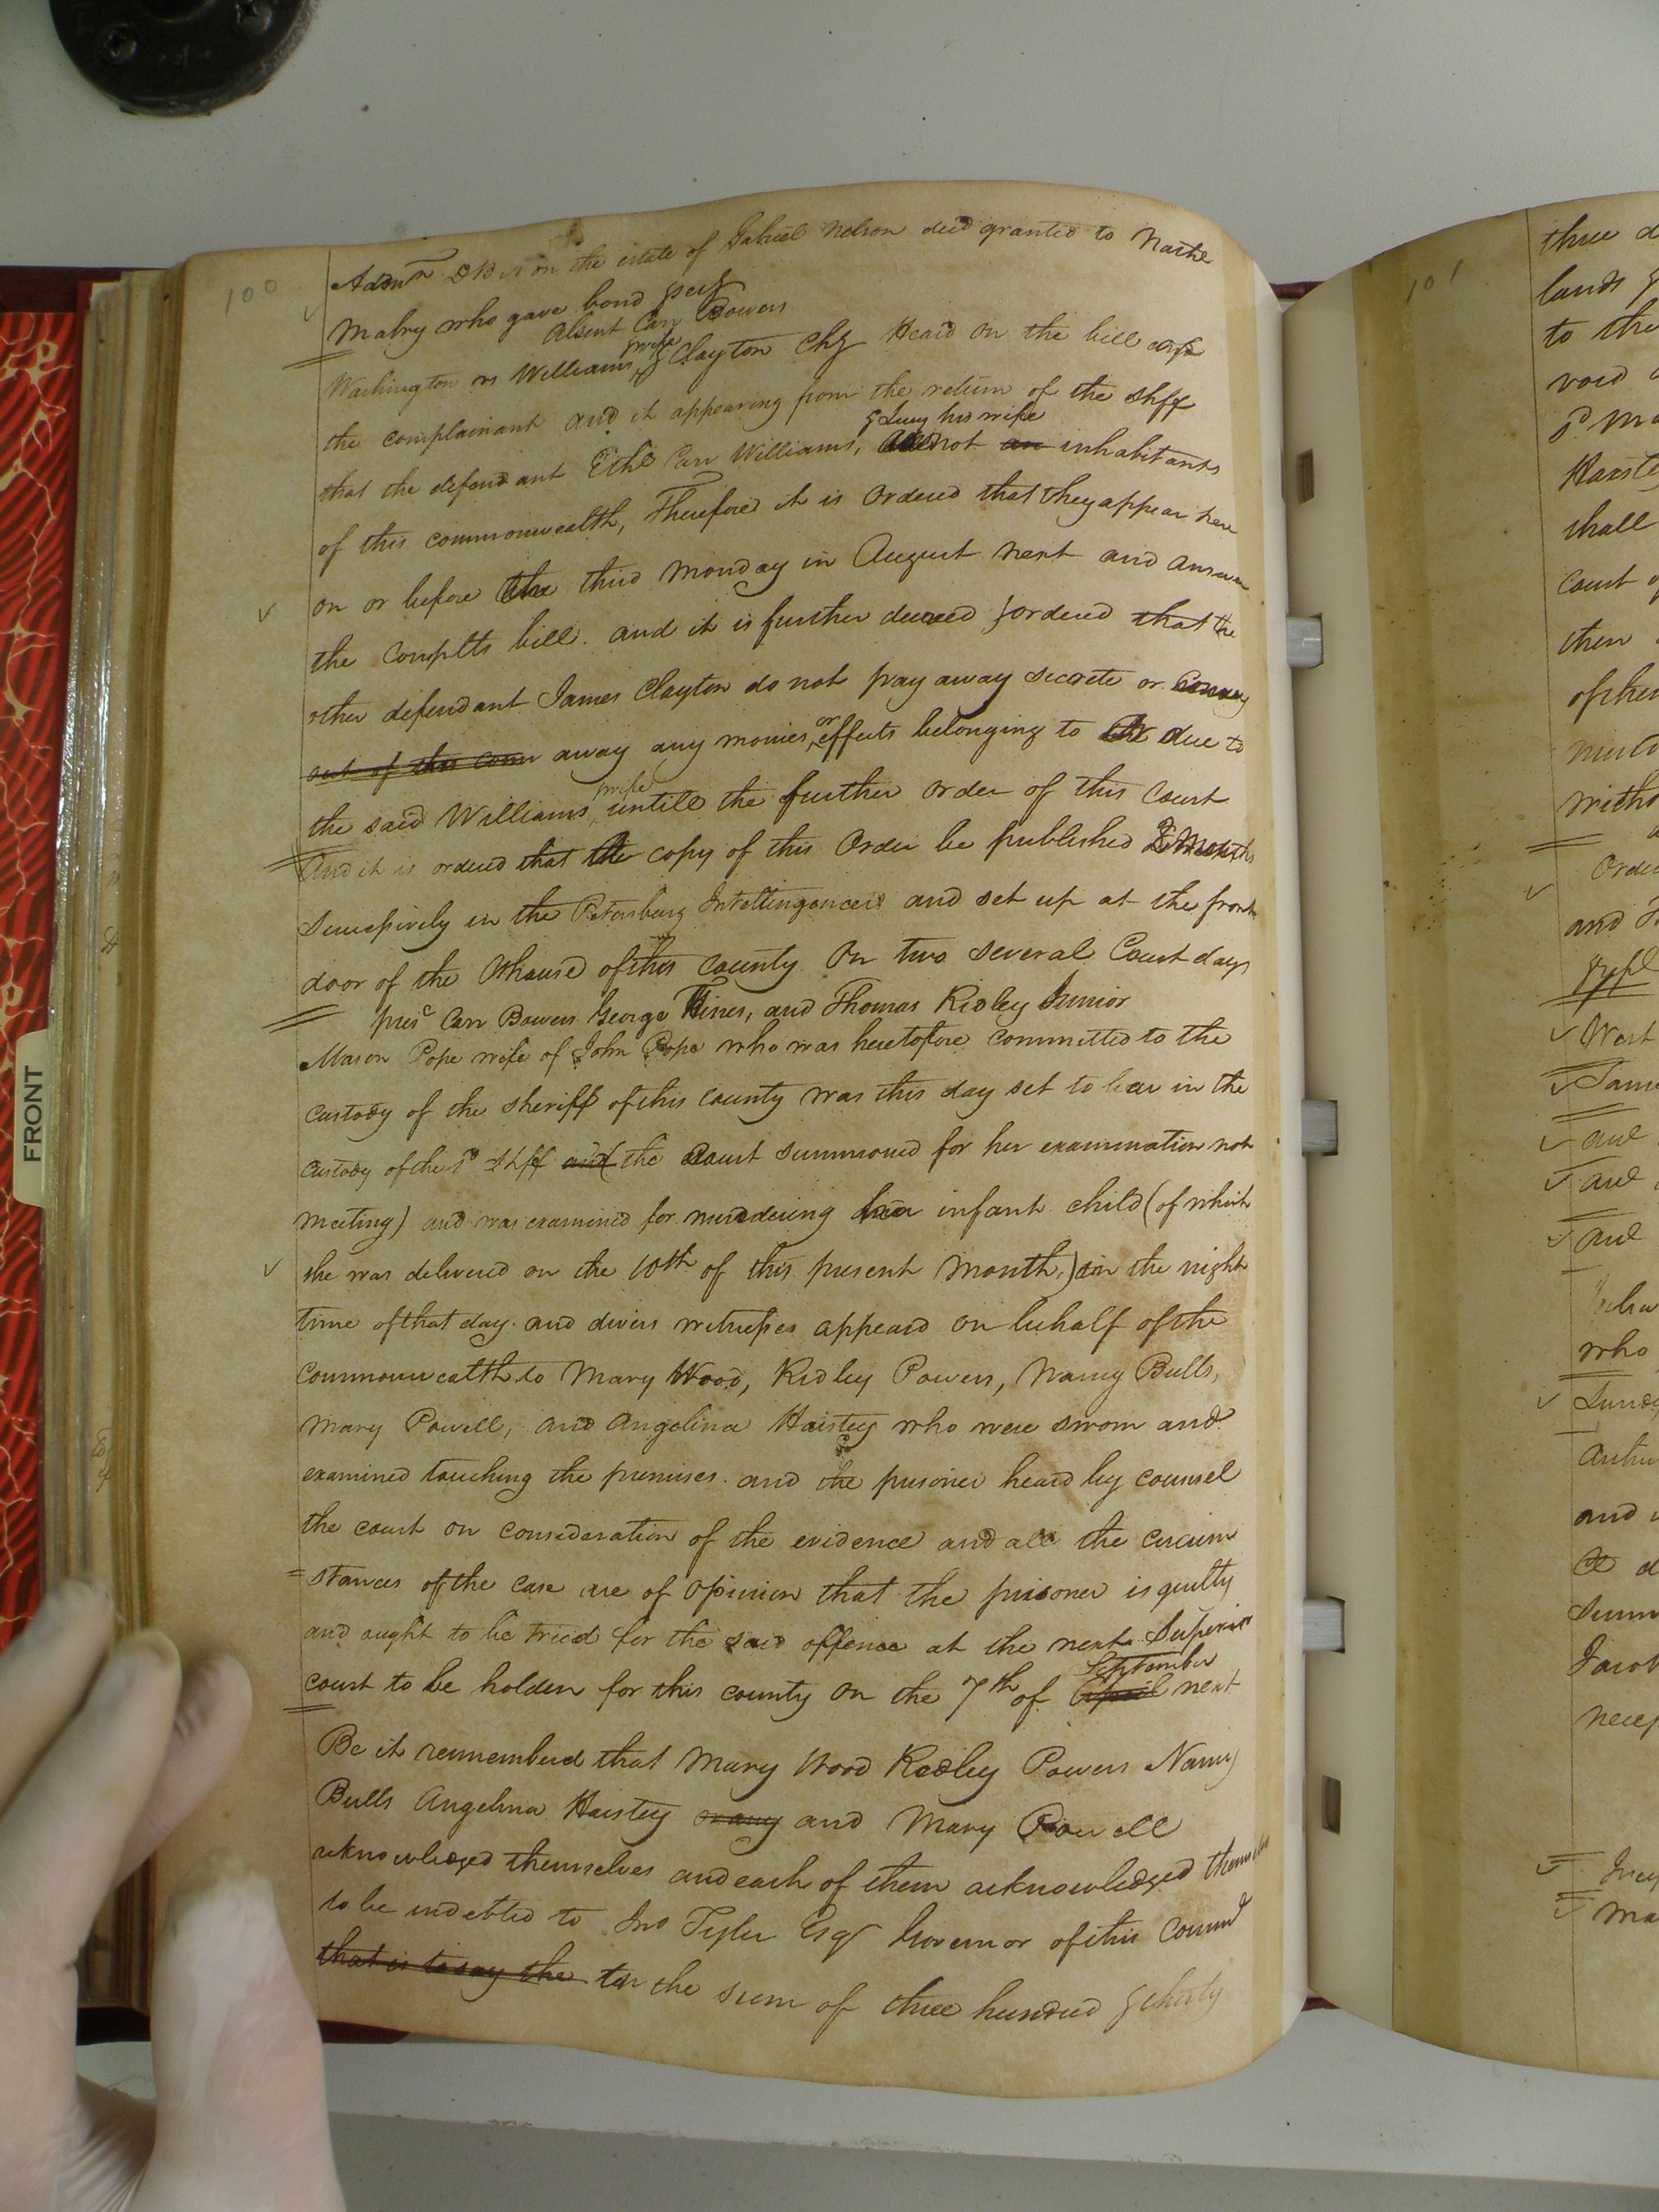 100
Admn D B N on the estate of Gabriel Nelson decd granted to Nathl
Mabry who gave bond &secy
Absent Carr Bowers
Washington vs Williams & wife & Clayton Chy Heard on the bill
the complainant and it appearing from the return of the Shff
that the defendant Ethd Carr Williams, & Lucy his wife not an inhabitants
of this commonwealth, Therefore it is Ordered that they appear here
on or before the third Monday in August next and answer
the complts bill. and it is further decreed & ordered that the
other defendant James Clayton do not pay away secrete or convey
out of this com away any monies, or effects belonging to or due to
the said Williams & wife untill the further order of this Court
And it is ordered that the copy of this Order be published 2 Months
successively in the Petersburg Intelligencer and set up at the front
door of the Cthouse of this County On two several Court days
prest Carr Bowers George Hines, and Thomas Ridley Junior
Mason Pope wife of John Pope who was heretofore committed to the
custody of the sheriff of this county was this day set to bar in the
custody of the sd Shff and (the Court summoned for her examination not
meeting) and was examined for murdering her infant child (of which
she was delivered on the 10th of this present Month,) in the night
time of that day. and divers witnesses appeard on behalf of the
commonwealth to Mary Wood, Ridley Powers, Nancy Bulls,
Mary Powell, and Angelina Haistey who were sworn and
examined touching the premises. and the prisoner heard by counsel
the court on consideration of the evidence and all the circum
= stances of the case are of opinion that the prisoner is guilty
and ought to be tried for the said offence at the next Superior
court to be holden for this county on the 7th of April September next
Be it rememberd that Mary Wood Ridley Powers Nancy
Bulls Angelina Haistey and Mary Powell
acknowledged themselves and each of them acknowledged themselves
to be indebted to Jno Tyler Esqr Governor of this Commd
that is to say the in the sum of three hundred & thirty
101
three
lands
to the
void
Haiste
shall
court
then
with
Orde
and
West
Jame
and
and
and
who
and
Jacob
FRONT